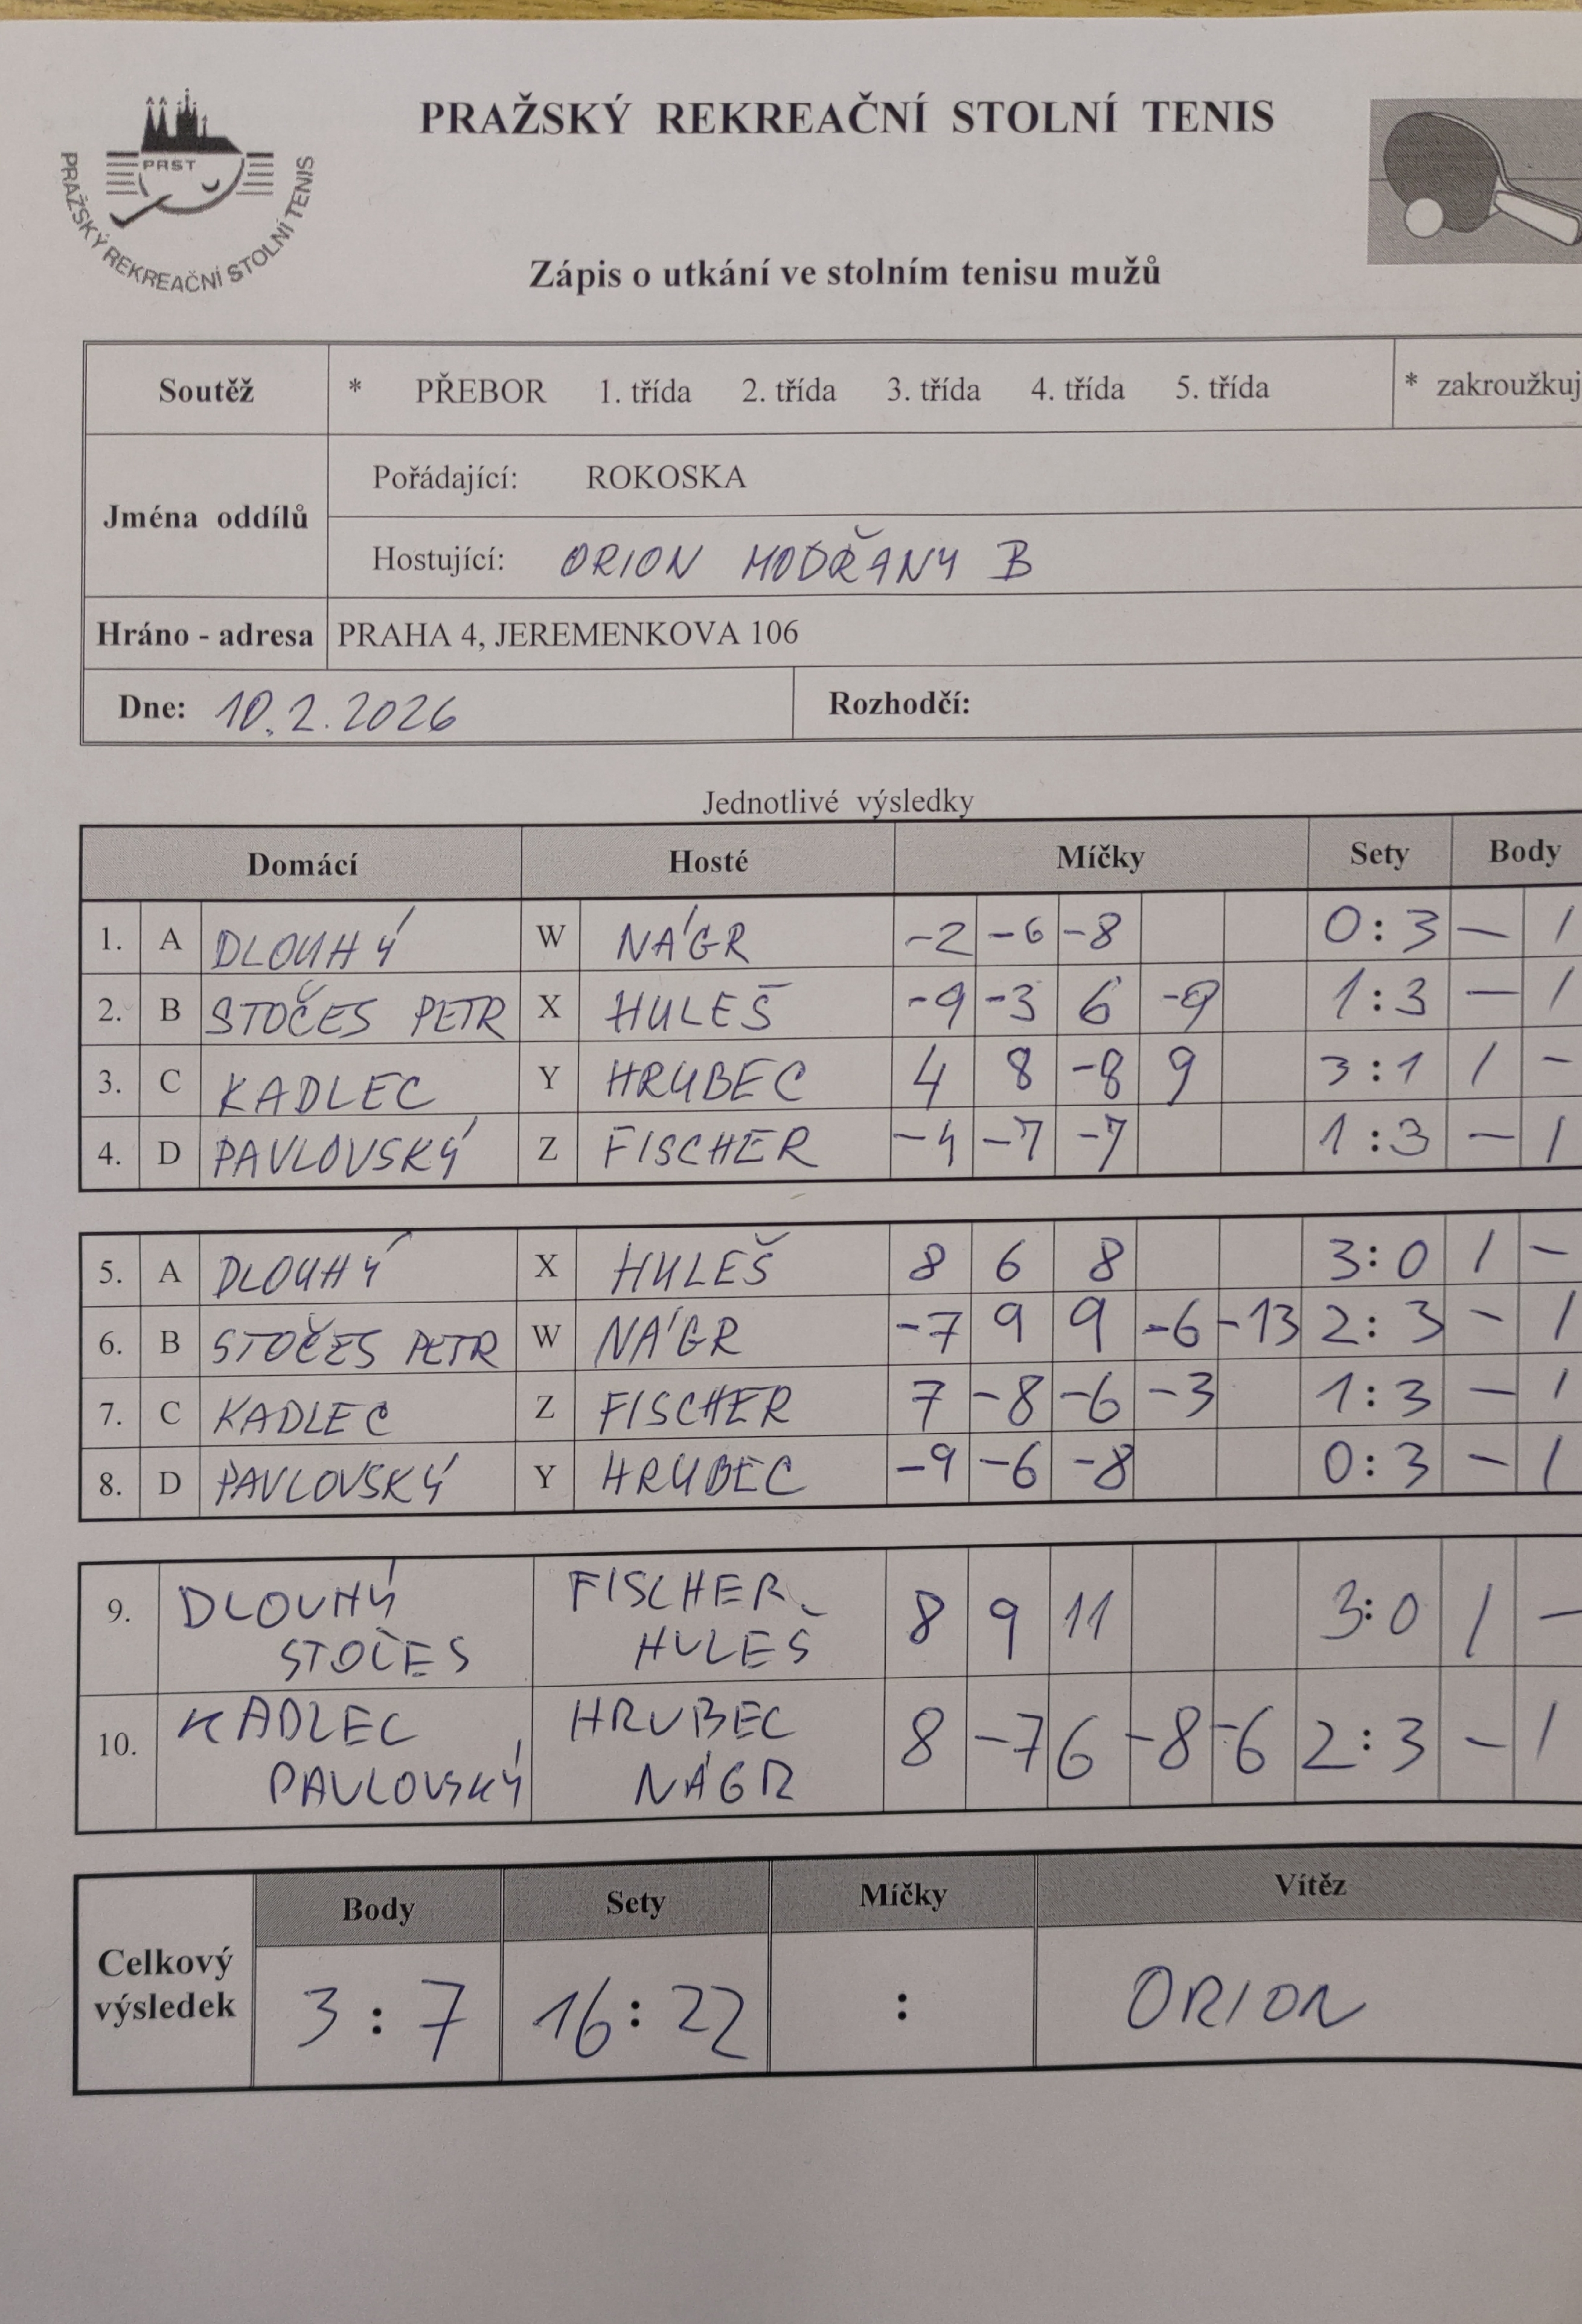 PRAŽSKÝ REKREAČNÍ STOLNÍ TENIS
PRST
PRAŽSKÝ REKREAČNÍ STOLNÍ TENIS
Zápis o utkání ve stolním tenisu mužů
Soutěž * PŘEBOR 1. třída 2. třída 3. třída 4. třída 5. třída * zakroužkuj
Jména oddílů
Pořádající: ROKOSKA
Hostující: ORION MODŘANY B
Hráno - adresa PRAHA 4, JEREMENKOVA 106
Dne: 10.2.2026 Rozhodčí:
Jednotlivé výsledky
Domácí Hosté Míčky Sety Body
1. A DLOUHÝ W NÁGR -2 -6 -8 0:3 — 1
2. B STOČES PETR X HULEŠ -9 -3 6 -9 1:3 — 1
3. C KADLEC Y HRUBEC 4 8 -8 9 3:1 1 -
4. D PAVLOVSKÝ Z FISCHER -4 -7 -7 1:3 — 1
5. A DLOUHÝ X HULEŠ 8 6 8 3:0 1 -
6. B STOČES PETR W NÁGR -7 9 9 -6 -13 2:3 - 1
7. C KADLEC Z FISCHER 7 -8 -6 -3 1:3 — 1
8. D PAVLOVSKÝ Y HRUBEC -9 -6 -8 0:3 - 1
9. DLOUHÝ FISCHER 8 9 11 3:0 1 —
STOČES HULEŠ
10. KADLEC HRUBEC 8 -7 6 -8 -6 2:3 - 1
PAVLOVSKÝ NÁGR
Body Sety Míčky Vítěz
Celkový výsledek 3:7 16:22 : ORION